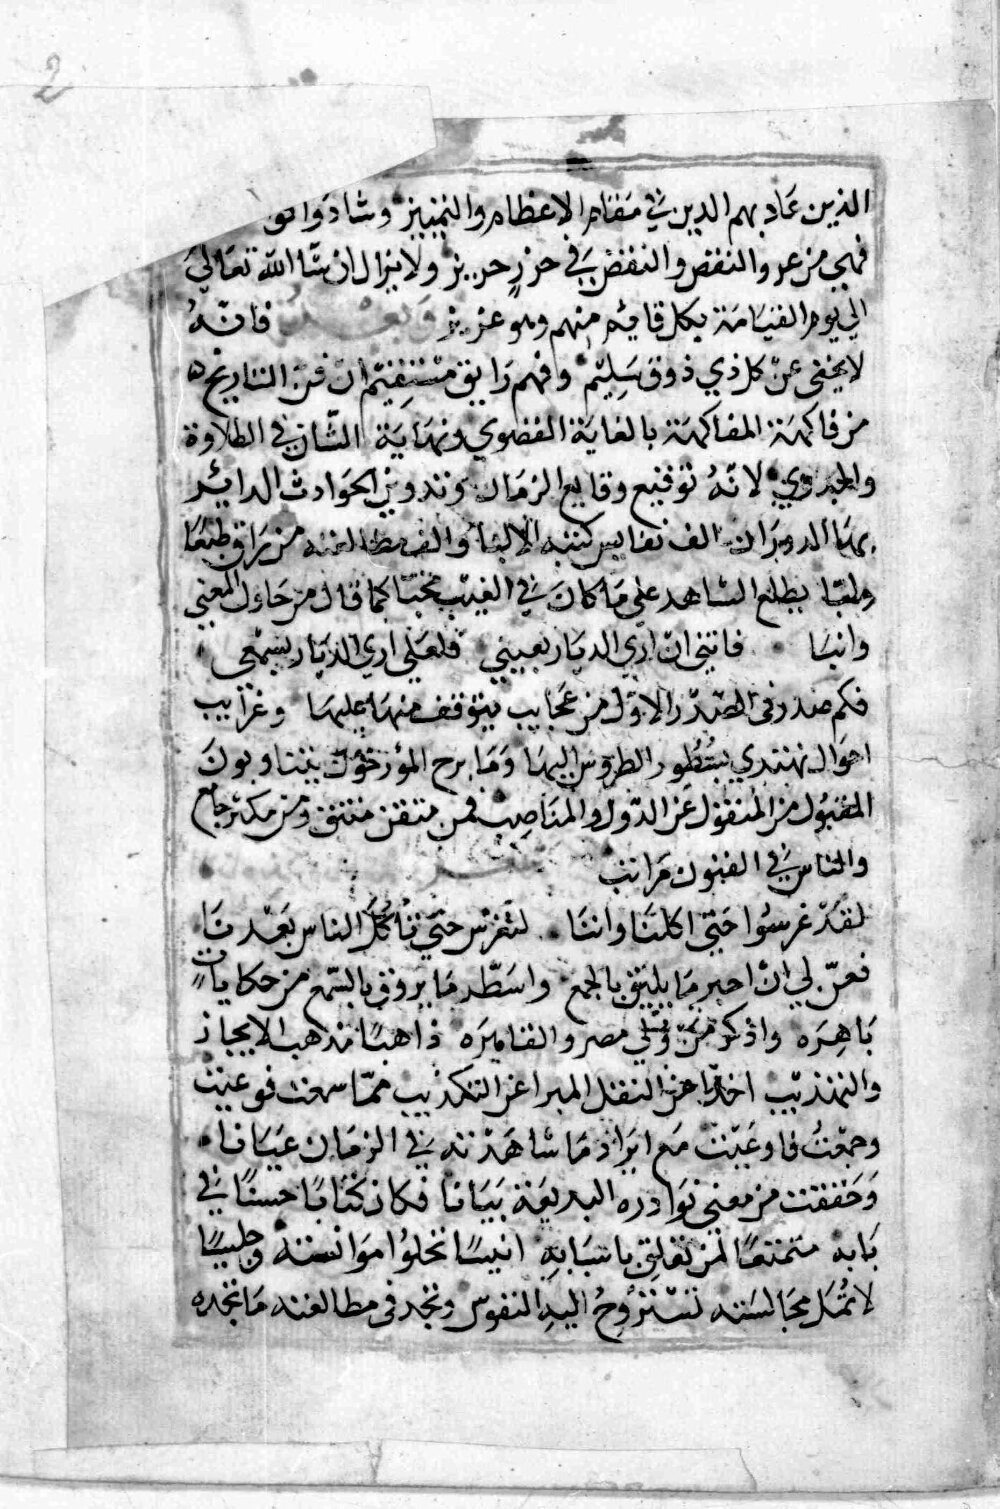 2
الذين عماد بهم الدين في مقام الاعظام والتمييز وشادوا
فهي من عروالنقض والنقض في حرز حريز ولا يزال ان شا الله تعالي
الي يوم القيامة بكل قايم منهم وهو عزيز وبعد فانه
لا يخفي عن كل ذي ذوق سليم وفهم رايق مستقيم ان فن التاريخ
من فاكهة المفاكهة بالغاية القصوي ونهاية الشان في الطلاوة
والجدوي لانه توقيع وقايع الزمان وتدوين الحوادث الداير
بها الدوران الف نفايس كتبه الالبا والف مطالعته من راق طبعا
ولقبا يطلع الشاهد علي ما كان في الغيب مخبا كما قال من حاول المعني
وانبا فاتني ان اري الديار بعيني فلعلي اري الديار بسمعي
فكم صدر في الصدر الاول من عجايب يتوقف منها عليها وغرايب
احوال نهتدي بسطور الطروس اليها وما برح المؤرخون يتناوبون
المقبول من المنقول عن الدول والمناصب فمن متقن منتق ومن مكثر جامع
والناس في الفنون مراتب
لقد غرسوا حتي اكلنا واننا لنغرس حتي تأكل الناس بعدنا
فعن لي ان احبر ما يليق بالجمع واسطر ما يروق بالسمع من حكايات
باهره واذكر من ولي مصر والقاهره ذاهبا مذهب الايجاز
والتهذيب اخذا من النقل المبرا عن التكذيب مما سمعت فوعيت
وجمعت فاوعيت مع ايراد ما شاهدته في الزمان عيانا
وحققت من معني نوادره البديعة بيانا فكان كتابا حسنا في
بابه ممتعا لمن تعلق باسبابه انيسا تحلوا موانسته وجليسا
لا تمل مجالسته تستروح اليه النفوس وتجد في مطالعته ما تجده